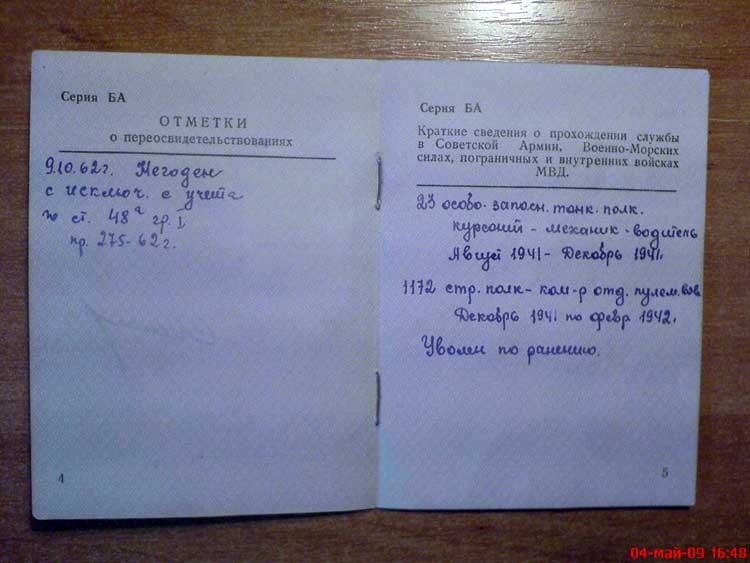 Серия БА
ОТМЕТКИ
о переосвидетельствованиях
9.10.62г. Негоден
с исключ. с учета
по ст. 48а гр. I
пр. 275-62г.
4
Серия БА
Краткие сведения о прохождении службы
в Советской Армии, Военно-Морских
силах, пограничных и внутренних войсках
МВД.
23 особо. запасн. танк. полк.
курсант - механик - водитель
Август 1941 - Декабрь 1941г.
1172 стр. полк - ком-р отд. пулем.
Декабрь 1941 по февр 1942г.
Уволен по ранению.
5
04-май-09 16:48